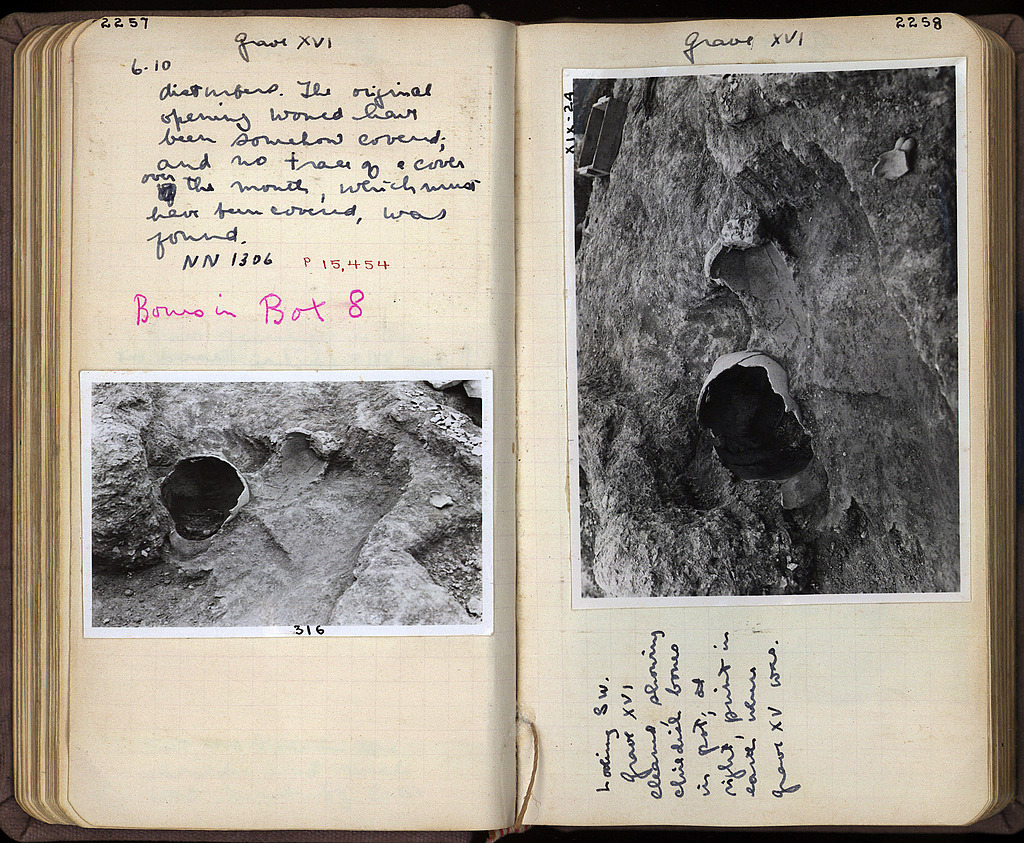 2257
Grave XVI
6.10
disturbers. The original
opening would have
been somehow covered;
and no trace of a cover
over the mouth, which must
have been covered, was
found.
NN 1306 P 15,454
Bones in Box 8
316
2258
Grave XVI
XIX-24
Looking SW.
Grave XVI
cleaned showing
child's bones
in pot; at
right, print in
earth where
grave XV was.